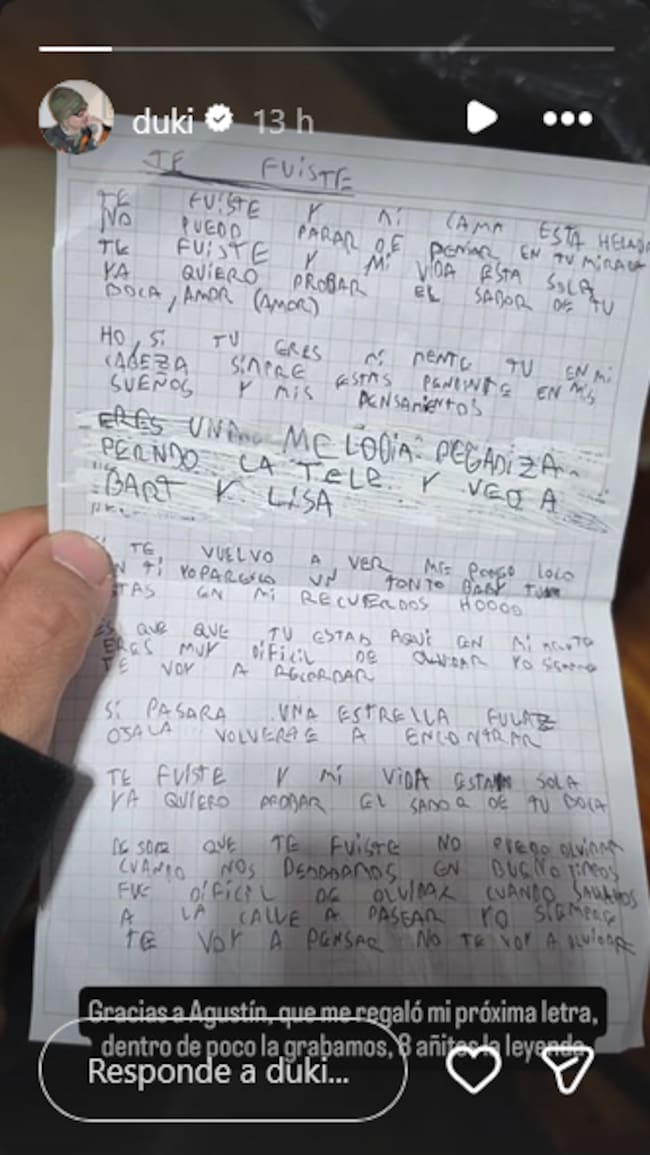 duki 13 h
TE FUISTE
TE FUISTE Y MI CAMA ESTA HELADA
NO PUEDO PARAR DE PENSAR EN TU MIRADA
TE FUISTE Y MI VIDA ESTA SOLA
YA QUIERO PROBAR EL SABOR DE TU
BOCA, AMOR (AMOR)
HO, SI TU ERES MI MENTE TU EN MI
CABEZA SINPRE ESTAS EN MIS
SUEÑOS Y MIS PENSAMIENTOS
ERES UNA MELODIA PEGADIZA
PERNDO LA TELE Y VEO A
BART Y LISA
TE VUELVO A VER ME PONGO LOCO
TI YO PARESCO UN TONTO BABY
EN MI RECUERDOS HOOOO
ES QUE QUE TU ESTAS AQUI EN MI
ERES MUY DIFICIL DE OLVIDAR YO
TE VOY A RECORDAR
SI PASARA UNA ESTRELLA
OJALA VOLVERTE A ENCONTRAR
TE FUISTE Y MI VIDA ESTA SOLA
YA QUIERO PROBAR EL SABOR DE TU BOCA
QUE TE FUISTE NO PUEDO OLVIDAR
CUANDO NOS EN
FUE DIFICIL DE OLVIDAR CUANDO
A LA CALLE A PASEAR YO SIEMPRE
TE VOY A PENSAR NO TE VOY A OLVIDAR
Gracias a Agustín, que me regaló mi próxima letra,
dentro de poco la grabamos, 8 añitos la leyenda
Responde a duki...